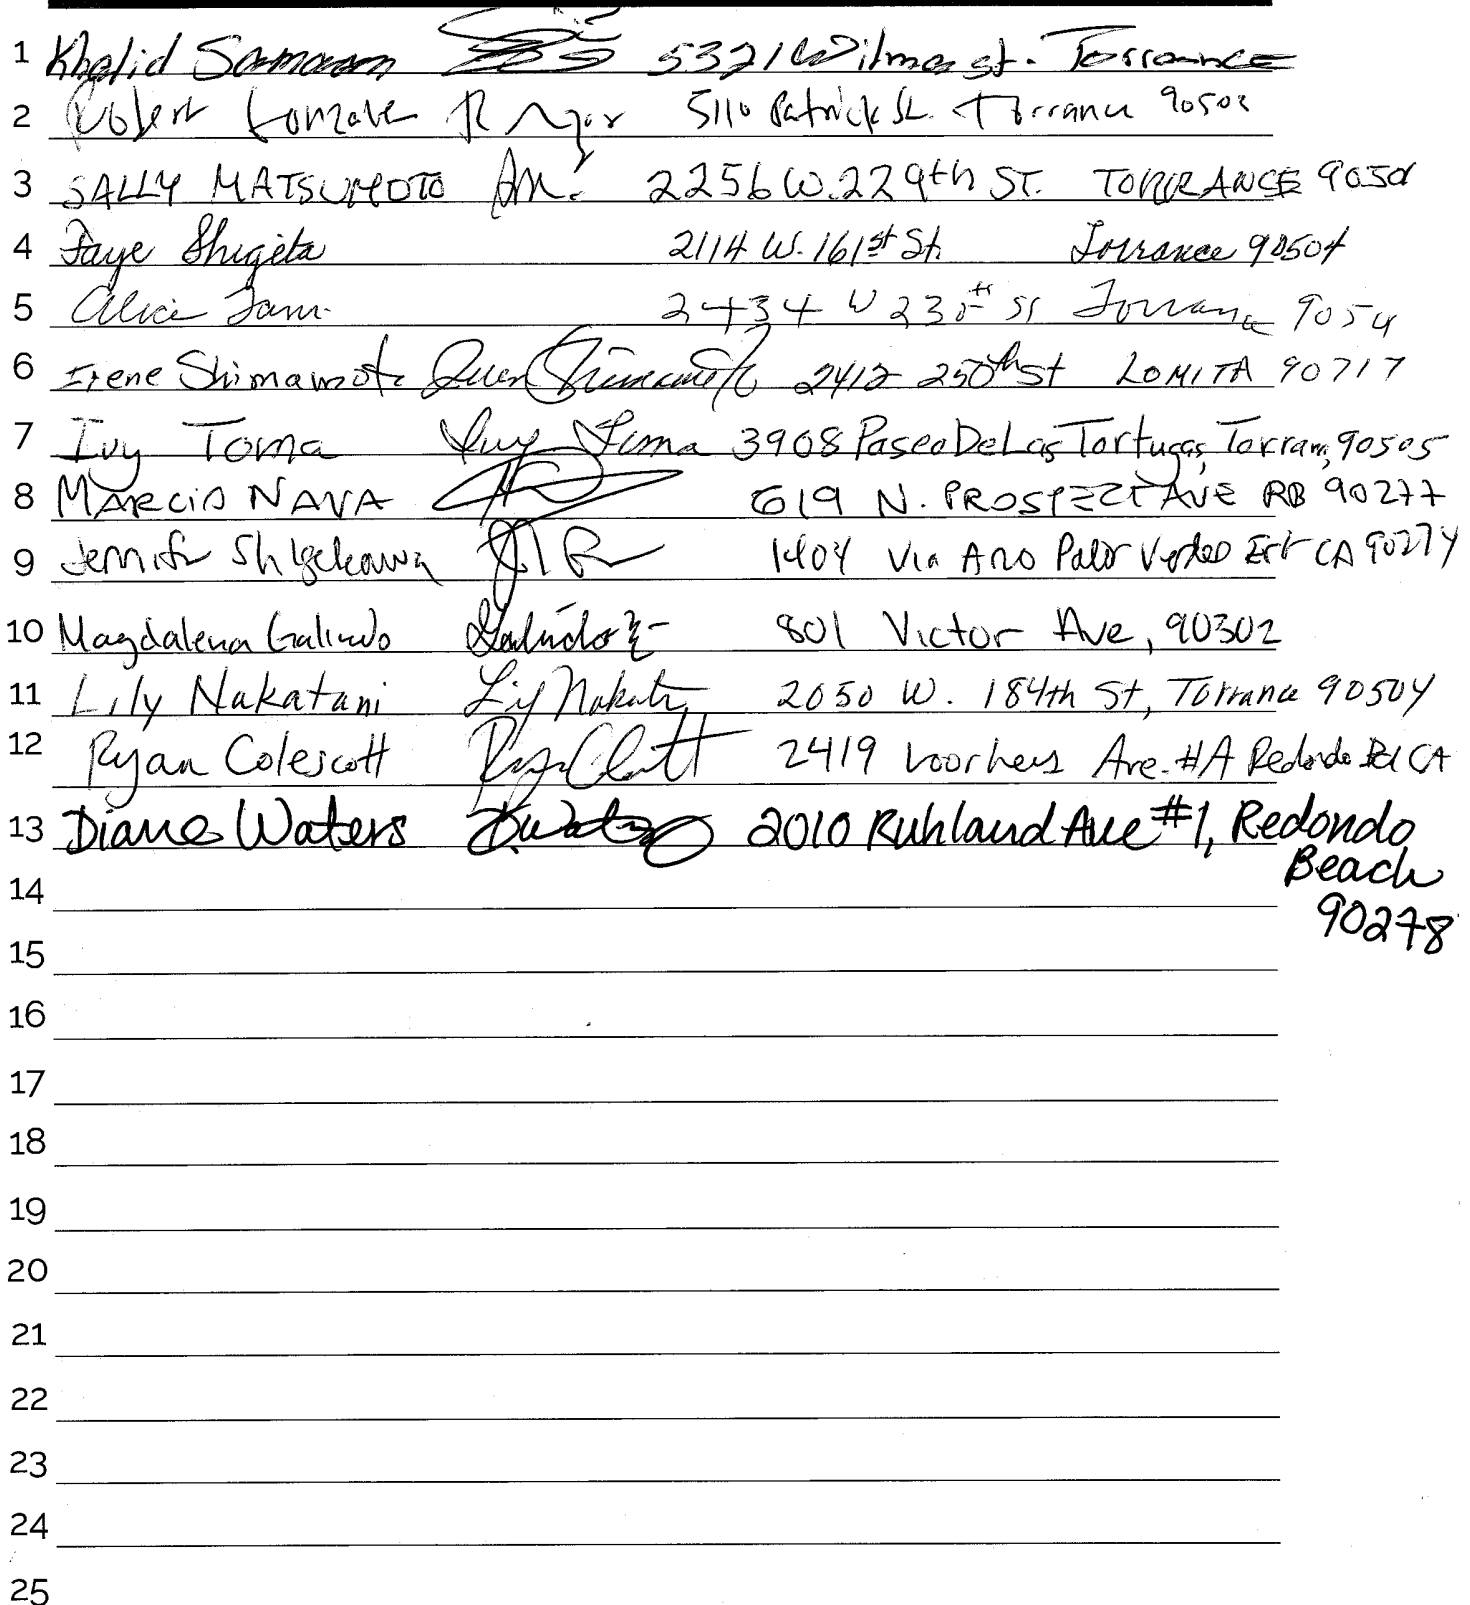 1 Khalid Samaan 5321 Wilma st. Torrance
2 Robert Gonzalez 5110 Patrick St. Torrance 90503
3 SALLY MATSUMOTO 2256 W. 229th ST. TORRANCE 90501
4 Faye Shigeta 2114 W. 161st St. Torrance 90504
5 Alice Tam 2434 W 230th St
6 Irene Shimamoto Irene Shimamoto 2412 250th St LOMITA 90717
7 Ivy Toma Ivy Toma 3908 Paseo De Las Tortugas, Torram, 90505
8 MARCIO NAVA 619 N. PROSPECT AVE RB 90277
9 Jennifer Shigekawa 1404 Via Arco Palos Verdes Est CA 90274
10 Magdalena Galindo Galindo 801 Victor Ave, 90302
11 Lily Nakatani Lily Nakatani 2050 W. 184th St, Torrance 90504
12 Ryan Colescott 2419 Voorhees Ave. #A Redondo Bch CA
13 Diane Waters D. Waters 2010 Ruhland Ave #1, Redondo
Beach
14
90278
15
16
17
18
19
20
21
22
23
24
25